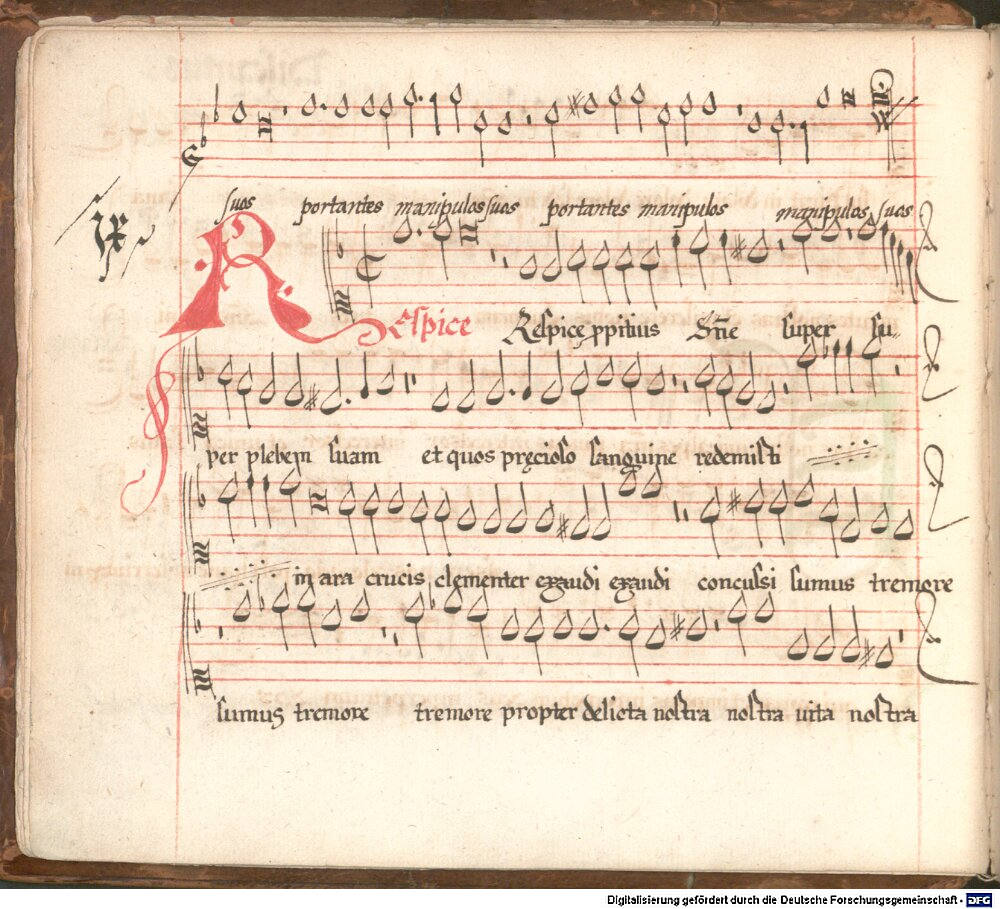 suos portantes manipulos suos portantes manipulos manipulos suos
Respice Respice ꝓpitius Dñe super su-
per plebem suam et quos pręcioso sanguine redemisti
in ara crucis clementer exaudi exaudi concussi sumus tremore
sumus tremore tremore propter delicta nostra nostra uita nostra
Digitalisierung gefördert durch die Deutsche Forschungsgemeinschaft - DFG